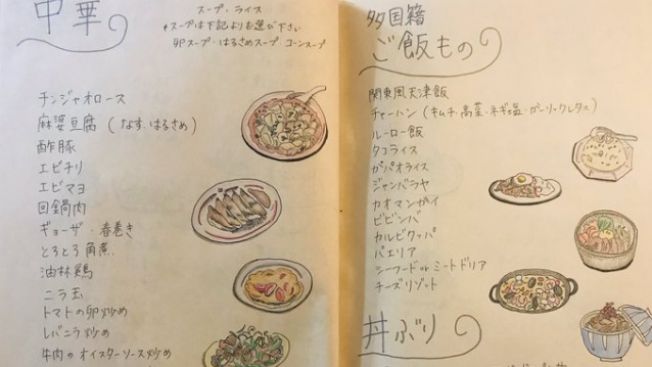 中華
スープ・ライス
*スープは下記よりお選び下さい
卵スープ・はるさめスープ コーンスープ
チンジャオロース
麻婆豆腐 (なす、はるさめ)
酢豚
エビチリ
エビマヨ
回鍋肉
ギョーザ・春巻き
とろとろ角煮
油林鶏
ニラ玉
トマトの卵炒め
レバニラ炒め
牛肉のオイスターソース炒め
多国籍
ご飯もの
関東風天津飯
チャーハン (キムチ・高菜・ネギ塩・ガーリックレタス)
ルーロー飯
タコライス
ガパオライス
ジャンバラヤ
カオマンガイ
ビビンバ
カルビクッパ
パエリア
シーフード or ミートドリア
チーズリゾット
丼ぶり